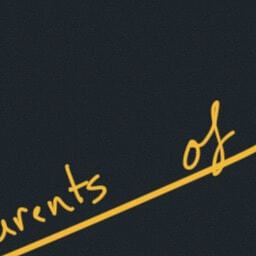 arents of